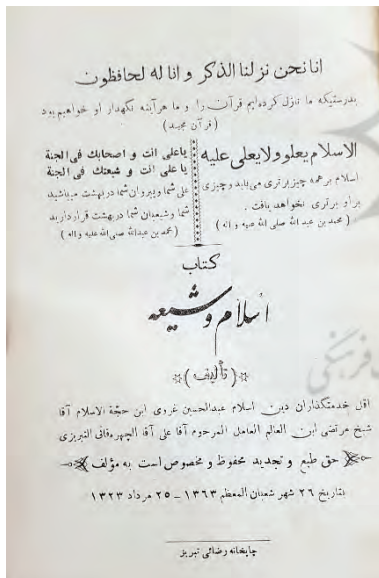 انا نحن نزلنا الذكر و انا له لحافظون
بدرستیکه ما نازل کرده‌ایم قرآن را و ما هرآینه نگهدار او خواهیم بود
( قرآن مجید )
الاسلام یعلو ولا یعلی علیه
اسلام برهمه چیز برتری می‌یابد و چیزی
براو برتری نخواهد یافت .
( محمد بن عبد الله صلی الله علیه و اله )
یاعلی انت و اصحابك فی الجنة
یا علی انت و شیعتك فی الجنة
علی شما و پیروان شما در بهشت میباشید
شما و شیعیان شما در بهشت قرار دارید
( محمد بن عبدالله صلی الله علیه و اله )
کتاب
اسلام و شیعه
( تألیف )
اقل خدمتگذاران دین اسلام عبدالحسین غروی ابن حجة الاسلام آقا
شیخ مرتضی ابن العالم العامل المرحوم آقا علی آقا الچهرقانی التبریزی
حق طبع و تجدید محفوظ و مخصوص است به مؤلف
بتاریخ ۲۶ شهر شعبان المعظم ۱۳۶۳ - ۲۵ مرداد ۱۳۲۳
چاپخانه رضائی تبریز
فرهنگی